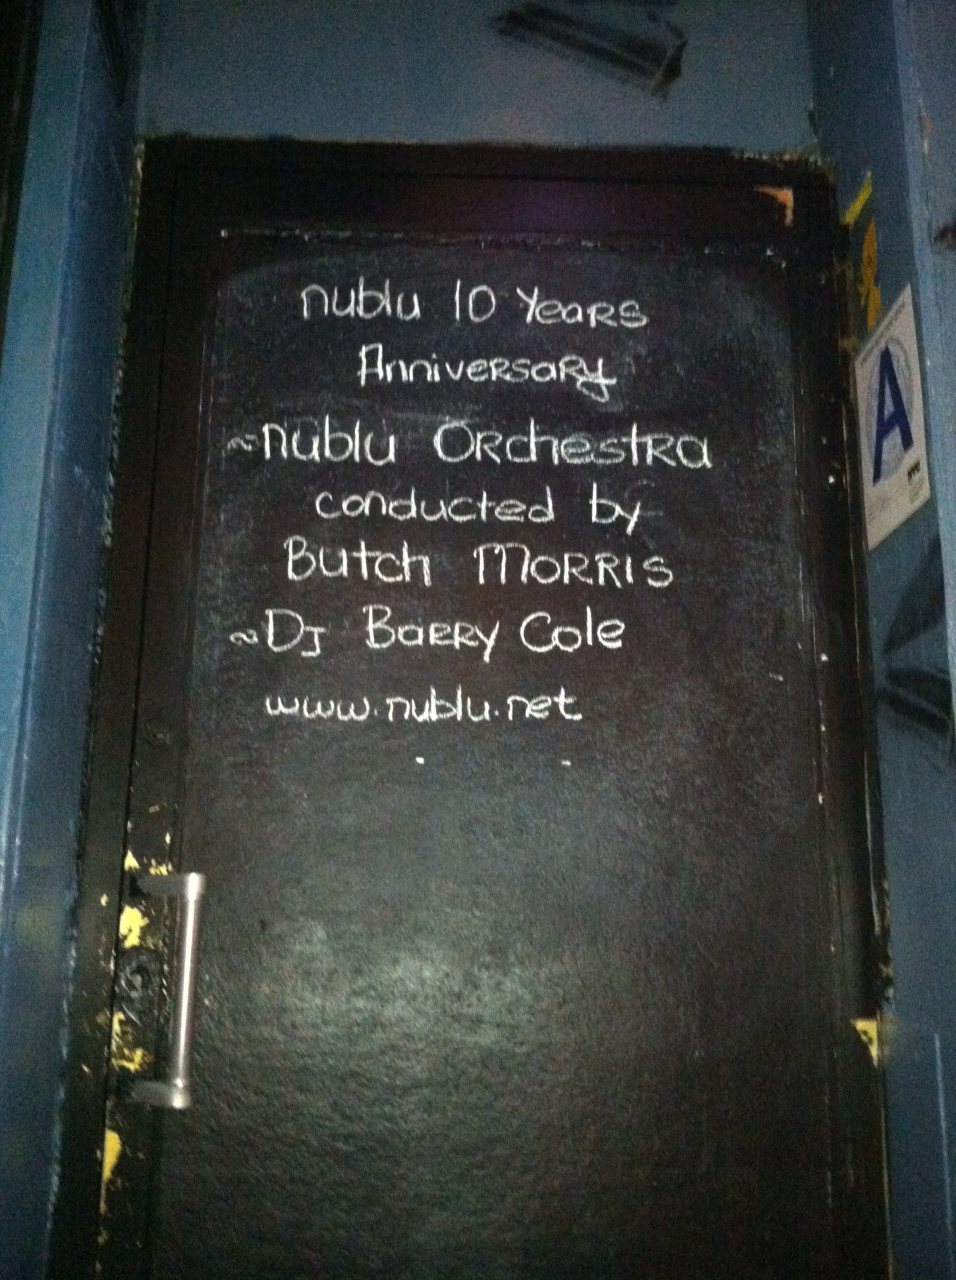 nublu 10 Years
Anniversary
~nublu Orchestra
conducted by
Butch Morris
~DJ Barry Cole
www.nublu.net
A